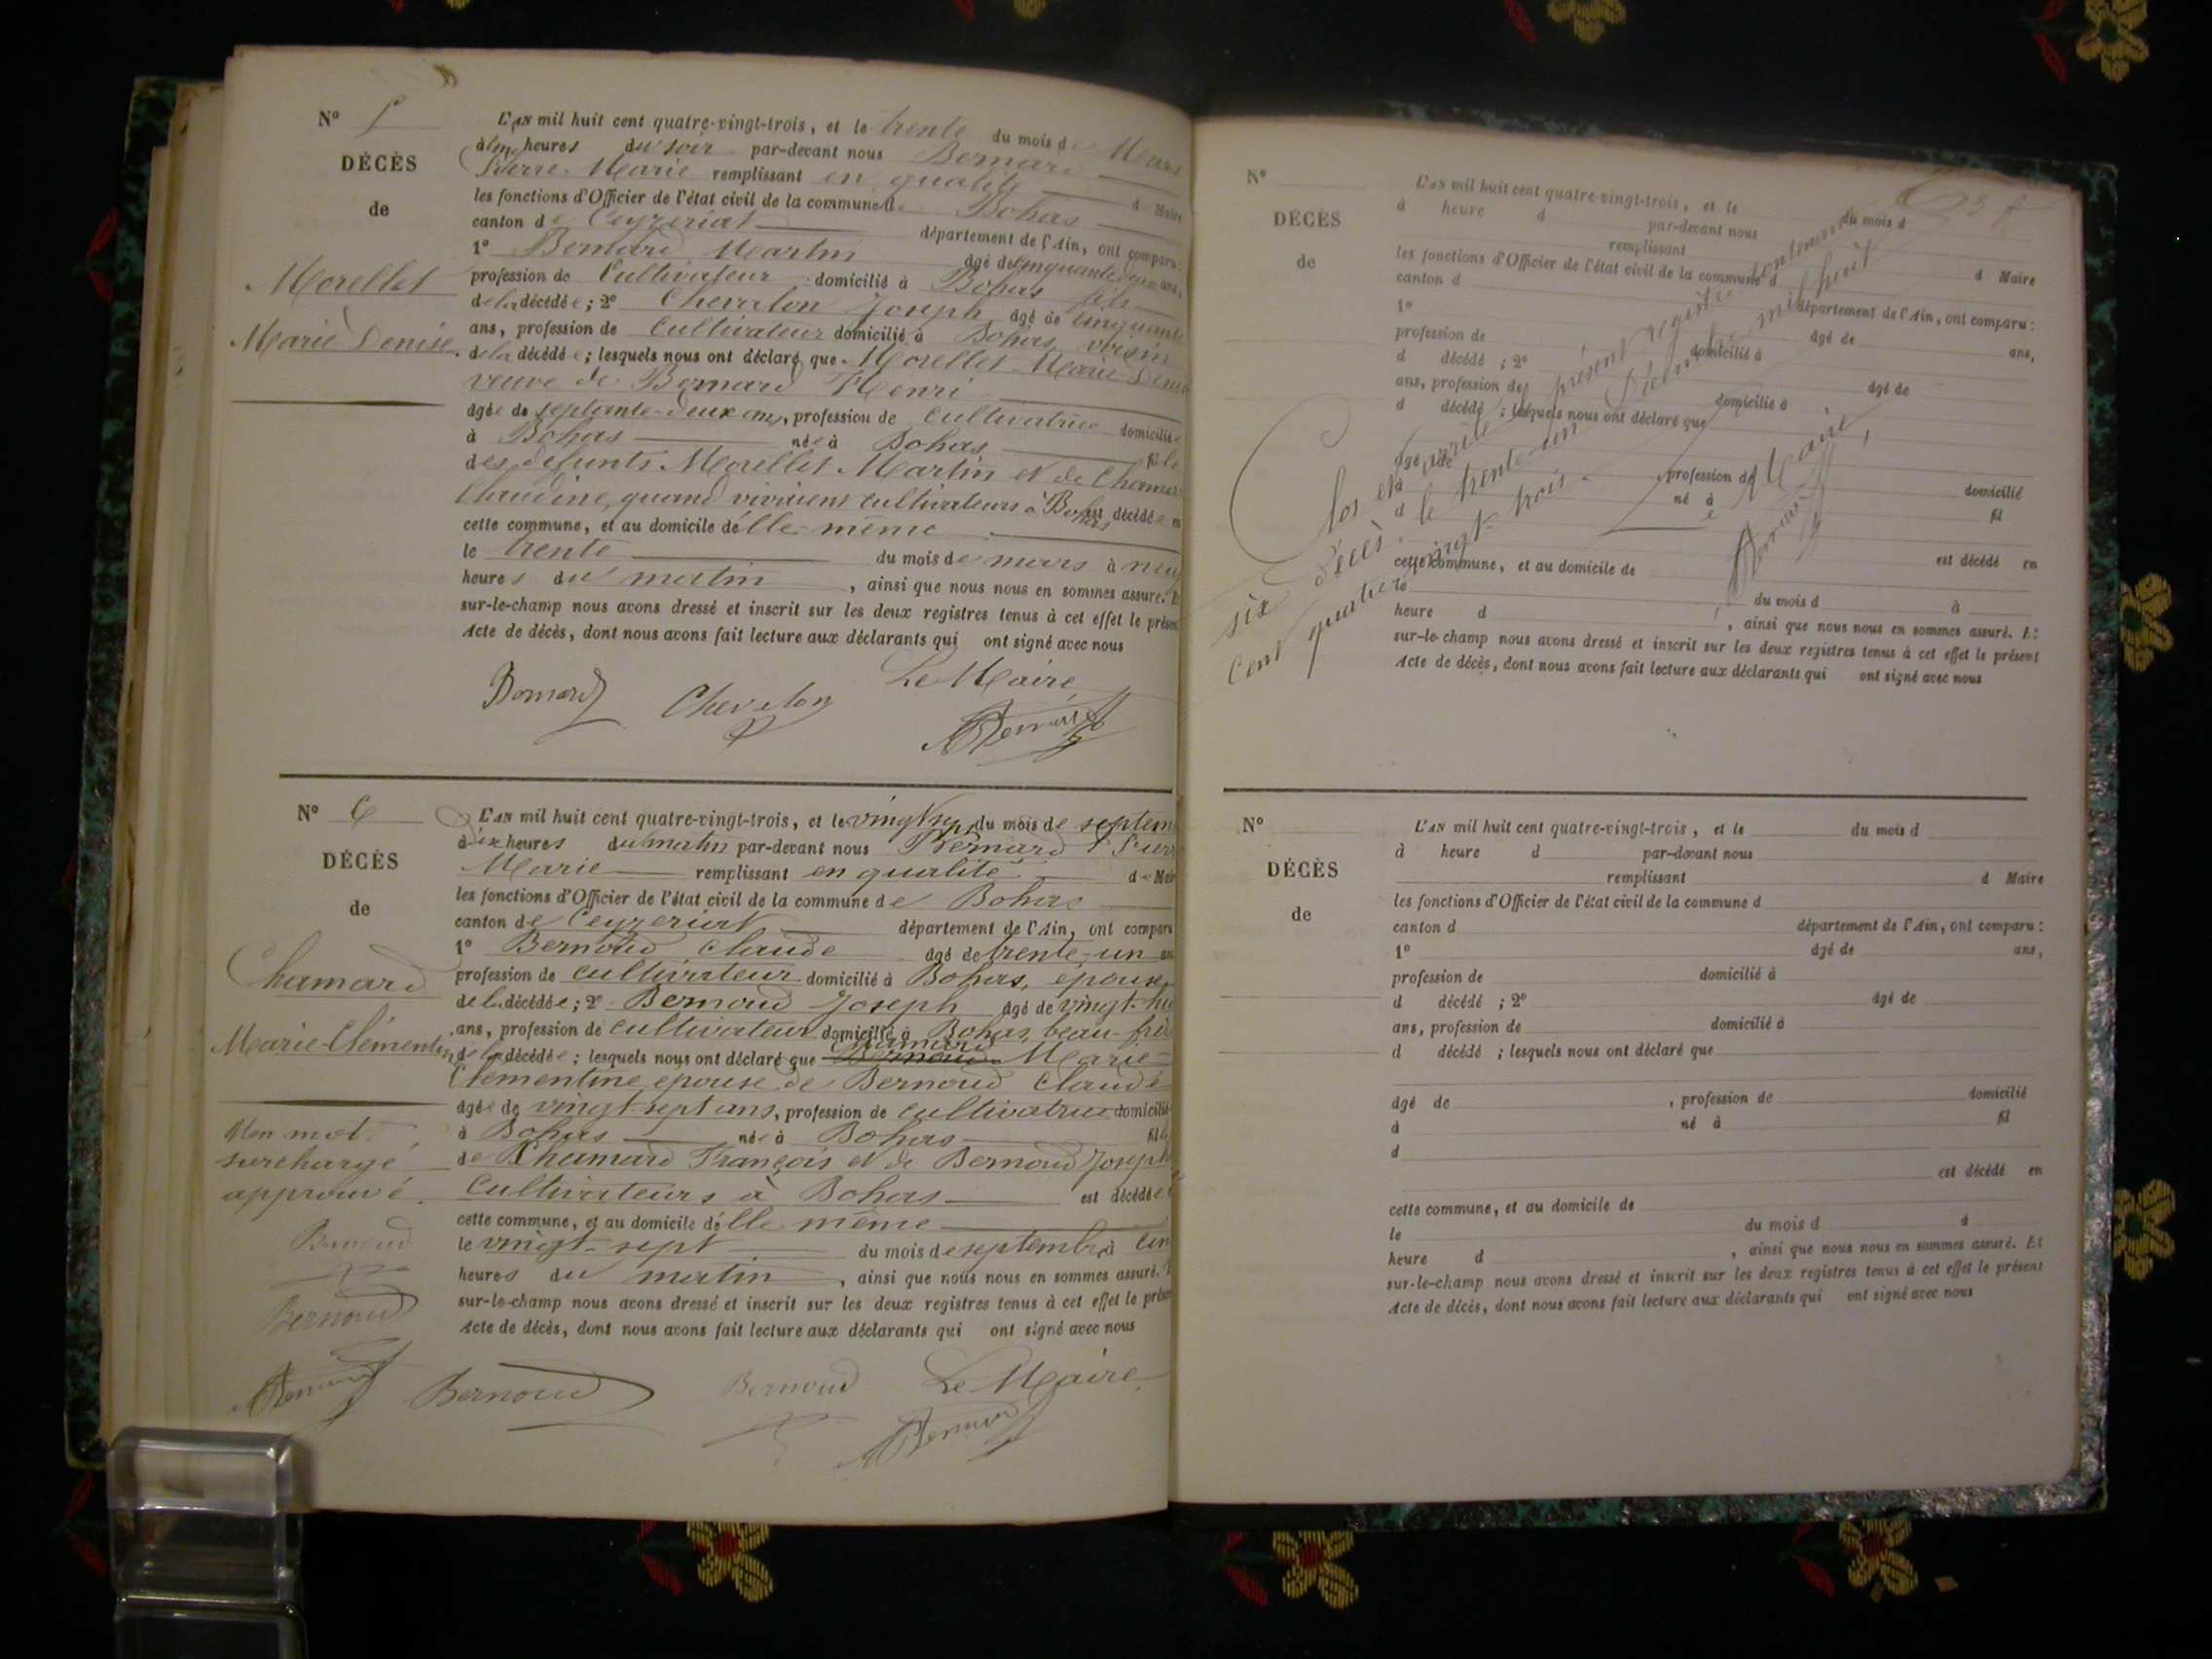 N° 5
DÉCÈS
de
Morellet
Marie Denise
L'AN mil huit cent quatre-vingt-trois, et le trente du mois de Mars
à heures du soir par-devant nous Bernard
Pierre Marie remplissant en qualité de Maire
les fonctions d'Officier de l'état civil de la commune de Bohas
canton de Ceyzeriat département de l'Ain, ont comparu:
1° Bernard Martin âgé de cinquante deux ans,
profession de Cultivateur domicilié à Bohas fils
de la décédée; 2° Chevelon Joseph âgé de cinquante
ans, profession de Cultivateur domicilié à Bohas, voisin
de la décédée; lesquels nous ont déclaré que Morellet Marie Denise
veuve de Bernard Henri
âgée de septante-deux ans, profession de cultivatrice domicilié
à Bohas née à Bohas fille
des défunts Morellet Martin et de Chamard
Claudine, quand vivaient cultivateurs à Bohas est décédée en
cette commune, et au domicile d'elle-même
le trente du mois de mars à neuf
heures du matin, ainsi que nous nous en sommes assuré. Et
sur-le-champ nous avons dressé et inscrit sur les deux registres tenus à cet effet le présent
Acte de décès, dont nous avons fait lecture aux déclarants qui ont signé avec nous
Le Maire
Bernard Chevelon Bernard
N° 6
DÉCÈS
de
Chamard
Marie-Clémentine
Un mot
surchargé
approuvé.
Bernoud
Bernoud
Bernard
L'AN mil huit cent quatre-vingt-trois, et le vingt sept du mois de septembre
à dix heures du matin par-devant nous Bernard Pierre
Marie remplissant en qualité de Maire
les fonctions d'Officier de l'état civil de la commune de Bohas
canton de Ceyzeriat département de l'Ain, ont comparu
1° Bernoud Claude âgé de trente-un ans
profession de cultivateur domicilié à Bohas, époux
de la décédée; 2° Bernoud Joseph âgé de vingt-huit
ans, profession de cultivateur domicilié à Bohas, beau-frère
de la décédée; lesquels nous ont déclaré que Chamard Marie-
Clémentine epouse de Bernoud Claude
âgée de vingt-sept ans, profession de cultivatrice domicilié
à Bohas née à Bohas fille
de Chamard François et de Bernoud Joseph
Cultivateurs à Bohas est décédée
cette commune, et au domicile d'elle même
le vingt-sept du mois de septembre à cinq
heures du matin, ainsi que nous nous en sommes assuré.
sur-le-champ nous avons dressé et inscrit sur les deux registres tenus à cet effet le présent
Acte de décès, dont nous avons fait lecture aux déclarants qui ont signé avec nous
Bernoud Bernoud Le Maire
Bernard
N°
DÉCÈS
de
L'AN mil huit cent quatre-vingt-trois, et le du mois d
à heure d par-devant nous
remplissant d Maire
les fonctions d'Officier de l'état civil de la commune d
canton d département de l'Ain, ont comparu:
1° âgé de ans,
profession de domicilié à
d décédé ; 2° âgé de
ans, profession de domicilié à
d décédé ; lesquels nous ont déclaré que
âgé de , profession de domicilié
à né à fil
d
est décédé en
cette commune, et au domicile de
le du mois d à
heure d , ainsi que nous nous en sommes assuré. Et
sur-le-champ nous avons dressé et inscrit sur les deux registres tenus à cet effet le présent
Acte de décès, dont nous avons fait lecture aux déclarants qui ont signé avec nous
Clos et arrêté le présent registre contenant
six décès le trente un Décembre mil huit
Cent quatre vingt-trois.
Le Maire,
Bernard
N°
DÉCÈS
de
L'AN mil huit cent quatre-vingt-trois, et le du mois d
à heure d par-devant nous
remplissant d Maire
les fonctions d'Officier de l'état civil de la commune d
canton d département de l'Ain, ont comparu:
1° âgé de ans,
profession de domicilié à
d décédé ; 2° âgé de
ans, profession de domicilié à
d décédé ; lesquels nous ont déclaré que
âgé de , profession de domicilié
à né à fil
d
est décédé en
cette commune, et au domicile de
le du mois d à
heure d , ainsi que nous nous en sommes assuré. Et
sur-le-champ nous avons dressé et inscrit sur les deux registres tenus à cet effet le présent
Acte de décès, dont nous avons fait lecture aux déclarants qui ont signé avec nous